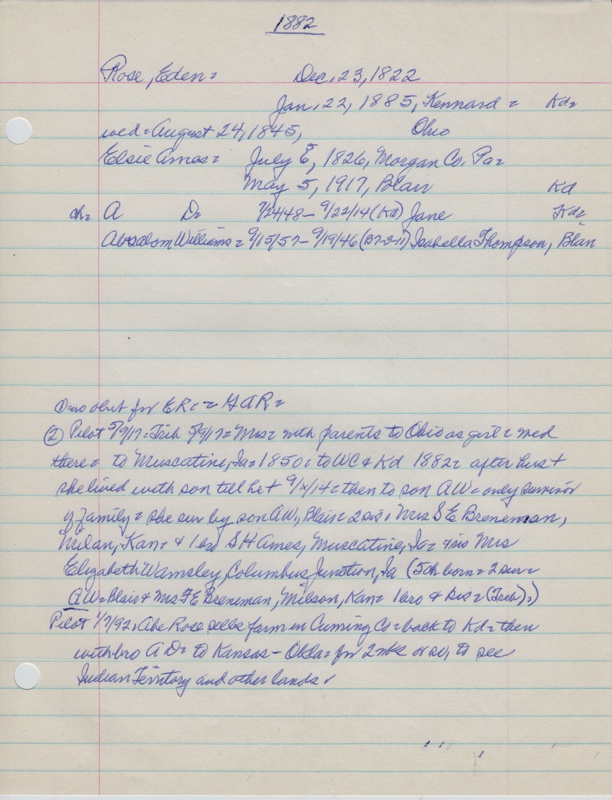 1882
Rose, Eden = Dec. 23, 1822
Jan. 22, 1885, Kennard = Kd=
wed = August 24, 1845, Ohio
Elsie Amos = July 8, 1826, Morgan Co. Pa =
May 5, 1917, Blair Kd
ch = A D = 7/24/48 - 9/22/14 (Kd) Jane Kd =
Absalom Williams = 9/15/57 - 9/19/46 (87-2-11) Isabella Thompson, Blair
obit for ER = = GAR =
② Pilot 5/9/17 = Trib 5/9/17 = Mrs = with parents to Ohio as girl = wed
there = to Muscatine, Ia = 1850 = to WC & Kd 1882 = after hus +
she lived with son till he + 9/x/14 = then to son AW = only survivor
of family = she sur by son AW, Blair = 2 sis, Mrs S E Breneman,
Milan, Kan = & 1 bro S H Ames, Muscatine, Ia = sis Mrs
Elizabeth Wamsley, Columbus Junction, Ia (5 ch born = 2 sur =
AW = Blair & Mrs F E Breneman, Milson, Kan = 1 bro & sis = (Trib) =)
Pilot 1/7/92, Abe Rose sells farm in Cuming Co = back to Kd = then
with bro A D = to Kansas - Okla = for 2 wks or so, to see
Indian Territory and other lands